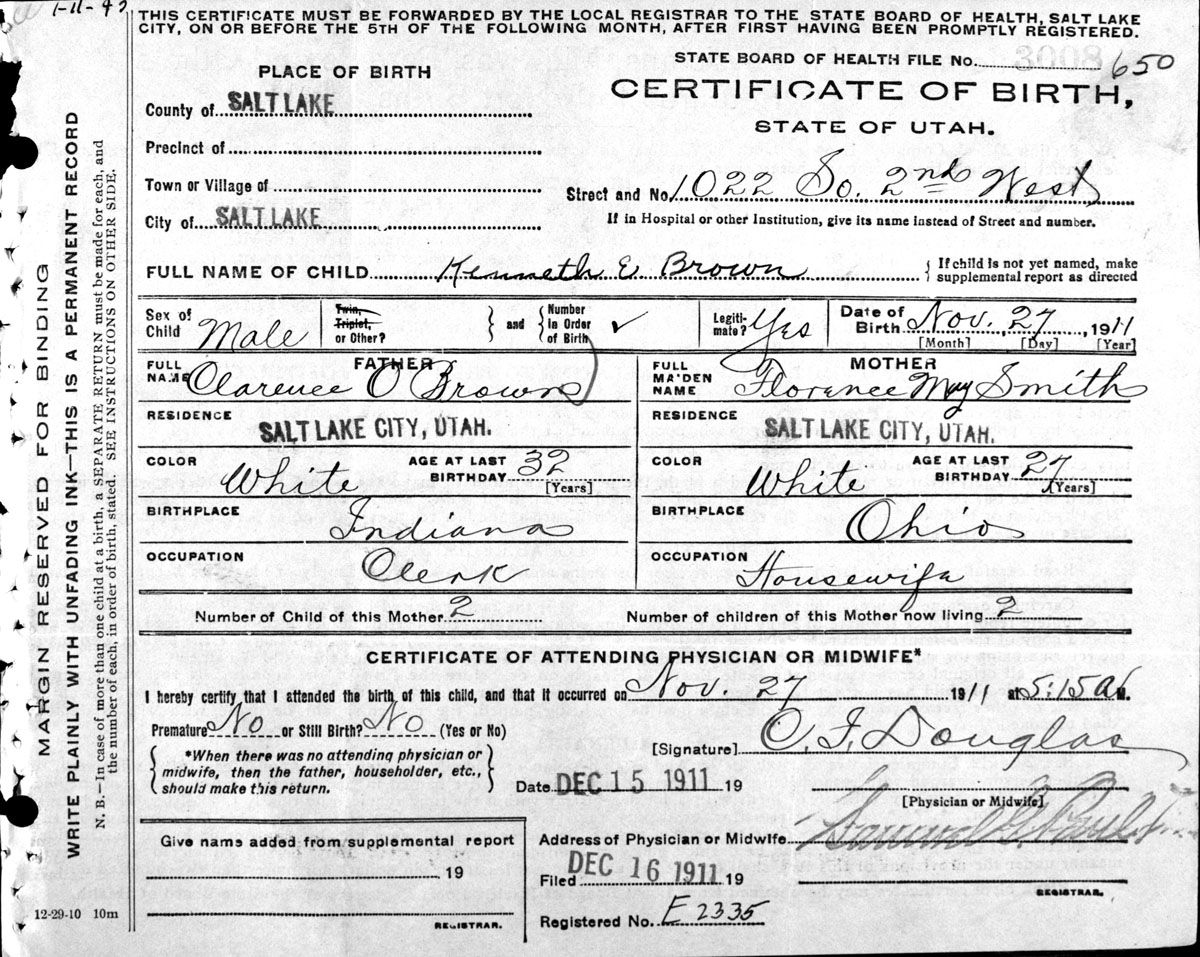 1-11-42
THIS CERTIFICATE MUST BE FORWARDED BY THE LOCAL REGISTRAR TO THE STATE BOARD OF HEALTH, SALT LAKE
CITY, ON OR BEFORE THE 5TH OF THE FOLLOWING MONTH, AFTER FIRST HAVING BEEN PROMPTLY REGISTERED.
STATE BOARD OF HEALTH FILE No. 3008 650
PLACE OF BIRTH
CERTIFICATE OF BIRTH,
STATE OF UTAH.
County of SALT LAKE
Precinct of
Town or Village of
Street and No. 1022 So. 2nd West
City of SALT LAKE
If in Hospital or other Institution, give its name instead of Street and number.
FULL NAME OF CHILD Kenneth E Brown
If child is not yet named, make
supplemental report as directed
Sex of Child Male
Twin, Triplet, or Other?
and
Number in Order of Birth ✓
Legiti-mate? Yes
Date of Birth Nov. 27, 1911
[Month] [Day] [Year]
FATHER
FULL NAME Clarence O Brown
MOTHER
FULL MAIDEN NAME Florence May Smith
RESIDENCE SALT LAKE CITY, UTAH.
RESIDENCE SALT LAKE CITY, UTAH.
COLOR White AGE AT LAST BIRTHDAY 32 [Years]
COLOR White AGE AT LAST BIRTHDAY 27 [Years]
BIRTHPLACE Indiana
BIRTHPLACE Ohio
OCCUPATION Clerk
OCCUPATION Housewife
Number of Child of this Mother 2
Number of children of this Mother now living 2
CERTIFICATE OF ATTENDING PHYSICIAN OR MIDWIFE*
I hereby certify that I attended the birth of this child, and that it occurred on Nov. 27 1911 at 5:15 A M.
Premature No or Still Birth? No (Yes or No)
[Signature] C. F. Douglas
*When there was no attending physician or
midwife, then the father, householder, etc.,
should make this return.
Date DEC 15 1911 19
[Physician or Midwife]
Give name added from supplemental report
19
REGISTRAR.
Address of Physician or Midwife
Samuel G.
Filed DEC 16 1911 19
REGISTRAR.
Registered No. E 2335
12-29-10 10m
MARGIN RESERVED FOR BINDING
WRITE PLAINLY WITH UNFADING INK—THIS IS A PERMANENT RECORD
N. B.—In case of more than one child at a birth, a SEPARATE RETURN must be made for each, and
the number of each, in order of birth, stated. SEE INSTRUCTIONS ON OTHER SIDE.